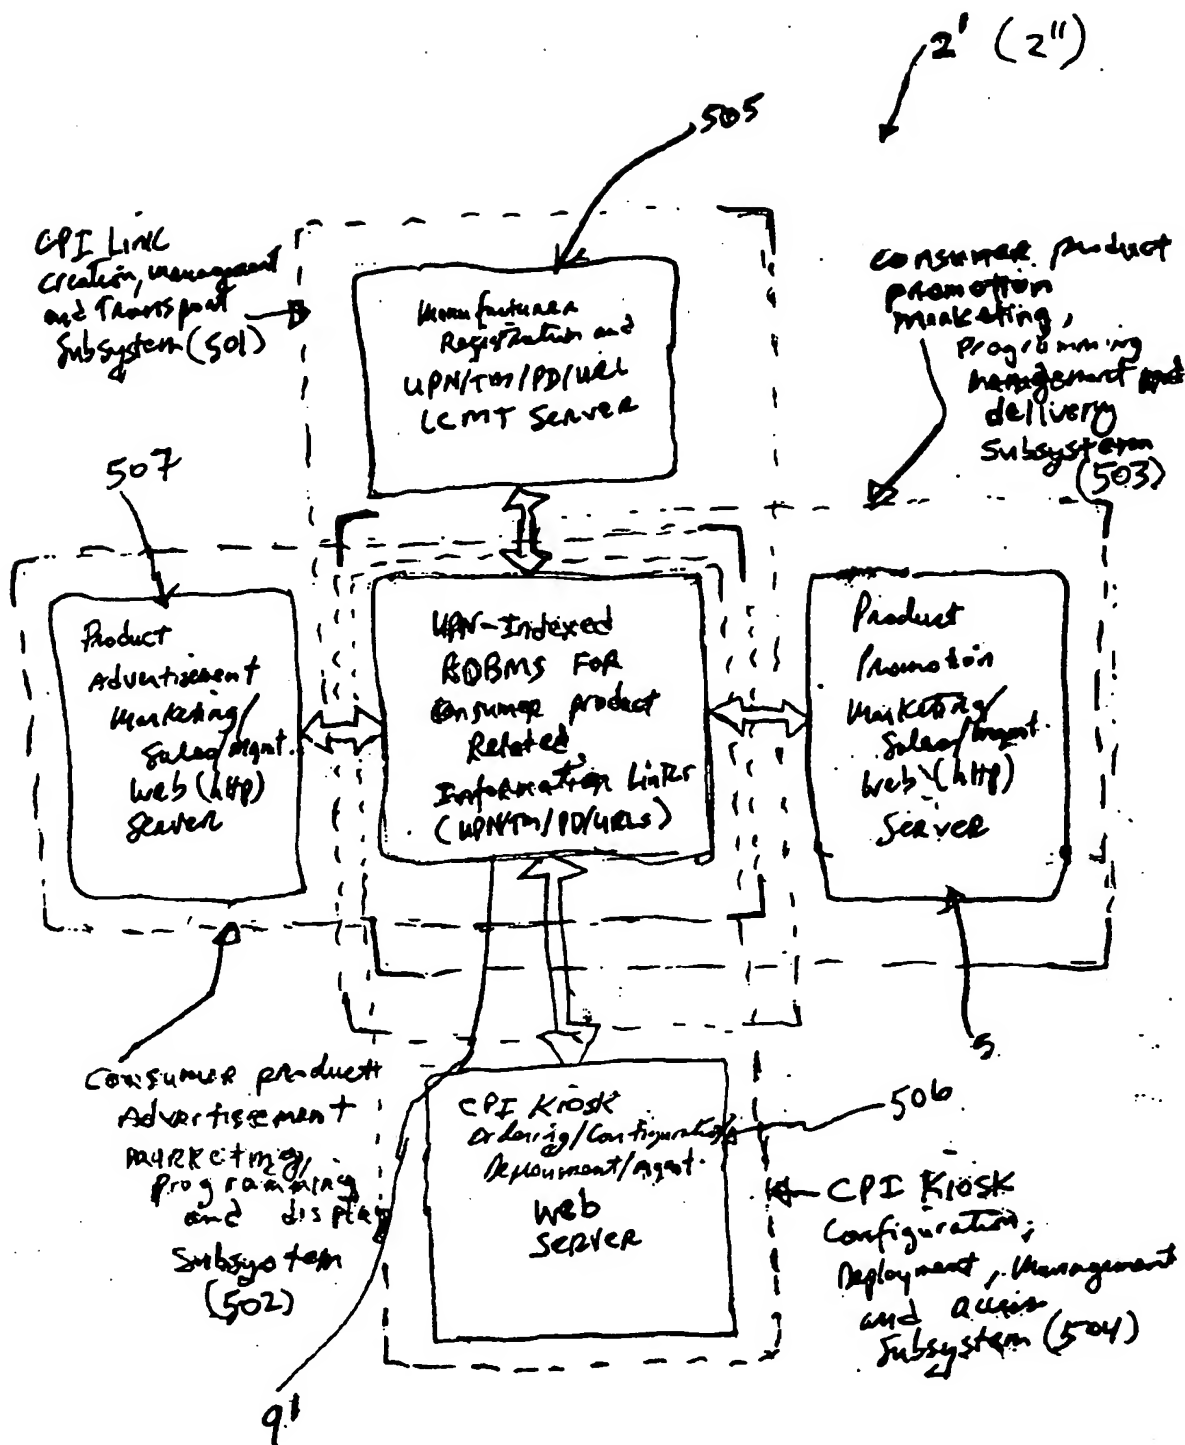 2' (2")
505
CPI Link
Creation, management
and Transport
Subsystem (501)
Manufacturer
Registration and
UPN/TM/PD/URL
LCMT Server
Consumer product
promotion
marketing,
programming
management and
delivery
Subsystem
(503)
507
Product
Advertisement
Marketing/
Sales/mgmt.
Web (http)
Server
UPN-Indexed
RDBMS FOR
Consumer product
Related
Information Links
(UPN/TM/PD/URLs)
Product
Promotion
Marketing/
Sales/mgmt.
Web (http)
Server
5
Consumer product
Advertisement
marketing,
programming
and display
Subsystem
(502)
CPI Kiosk
Ordering/Configuration/
Deployment/mgmt.
Web
Server
506
CPI Kiosk
Configuration,
Deployment, Management
and access
Subsystem (504)
9'